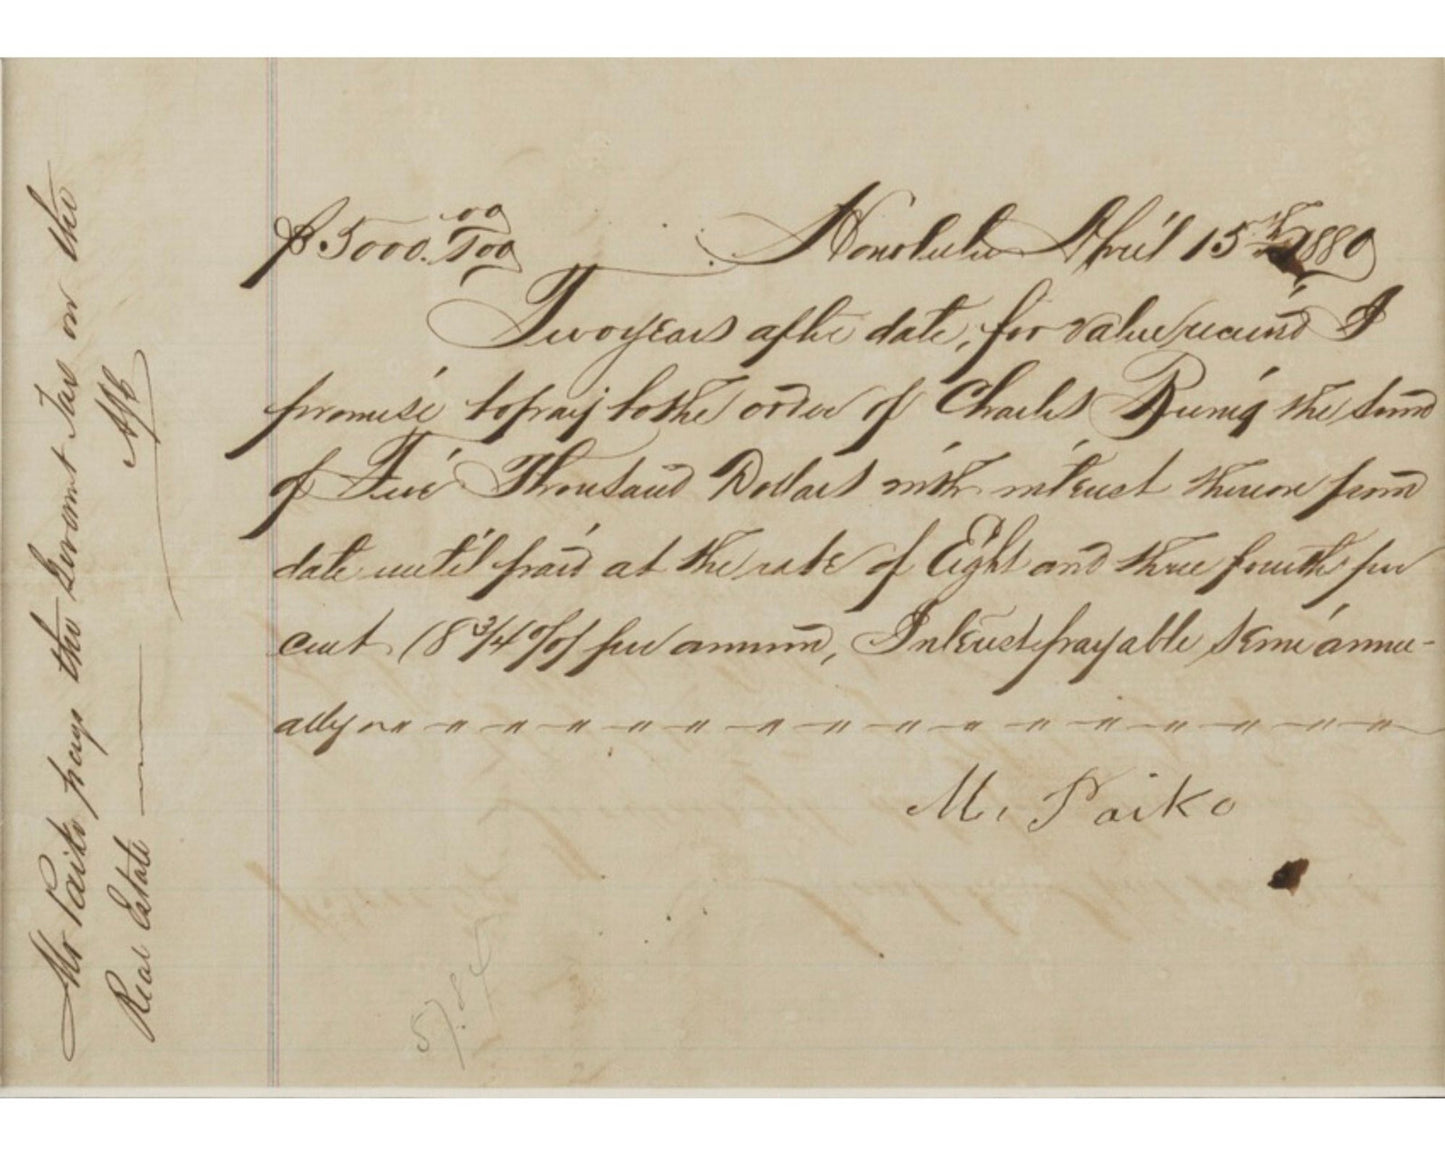 $5000. 00/100 Honolulu April 15th 1880
Two years after date, for value received I
promise to pay to the order of Charles the sum
of Five Thousand Dollars with interest thereon from
date until paid at the rate of Eight and three fourths per
cent (8 3/4 %) per annum, Interest payable semi annu-
ally " — " — " — " — " — " — " — " — " — " — " — " — " — " — "
M. Paiko
Mr Paiko pays the Goverment Tax on the
Real Estate
57.84